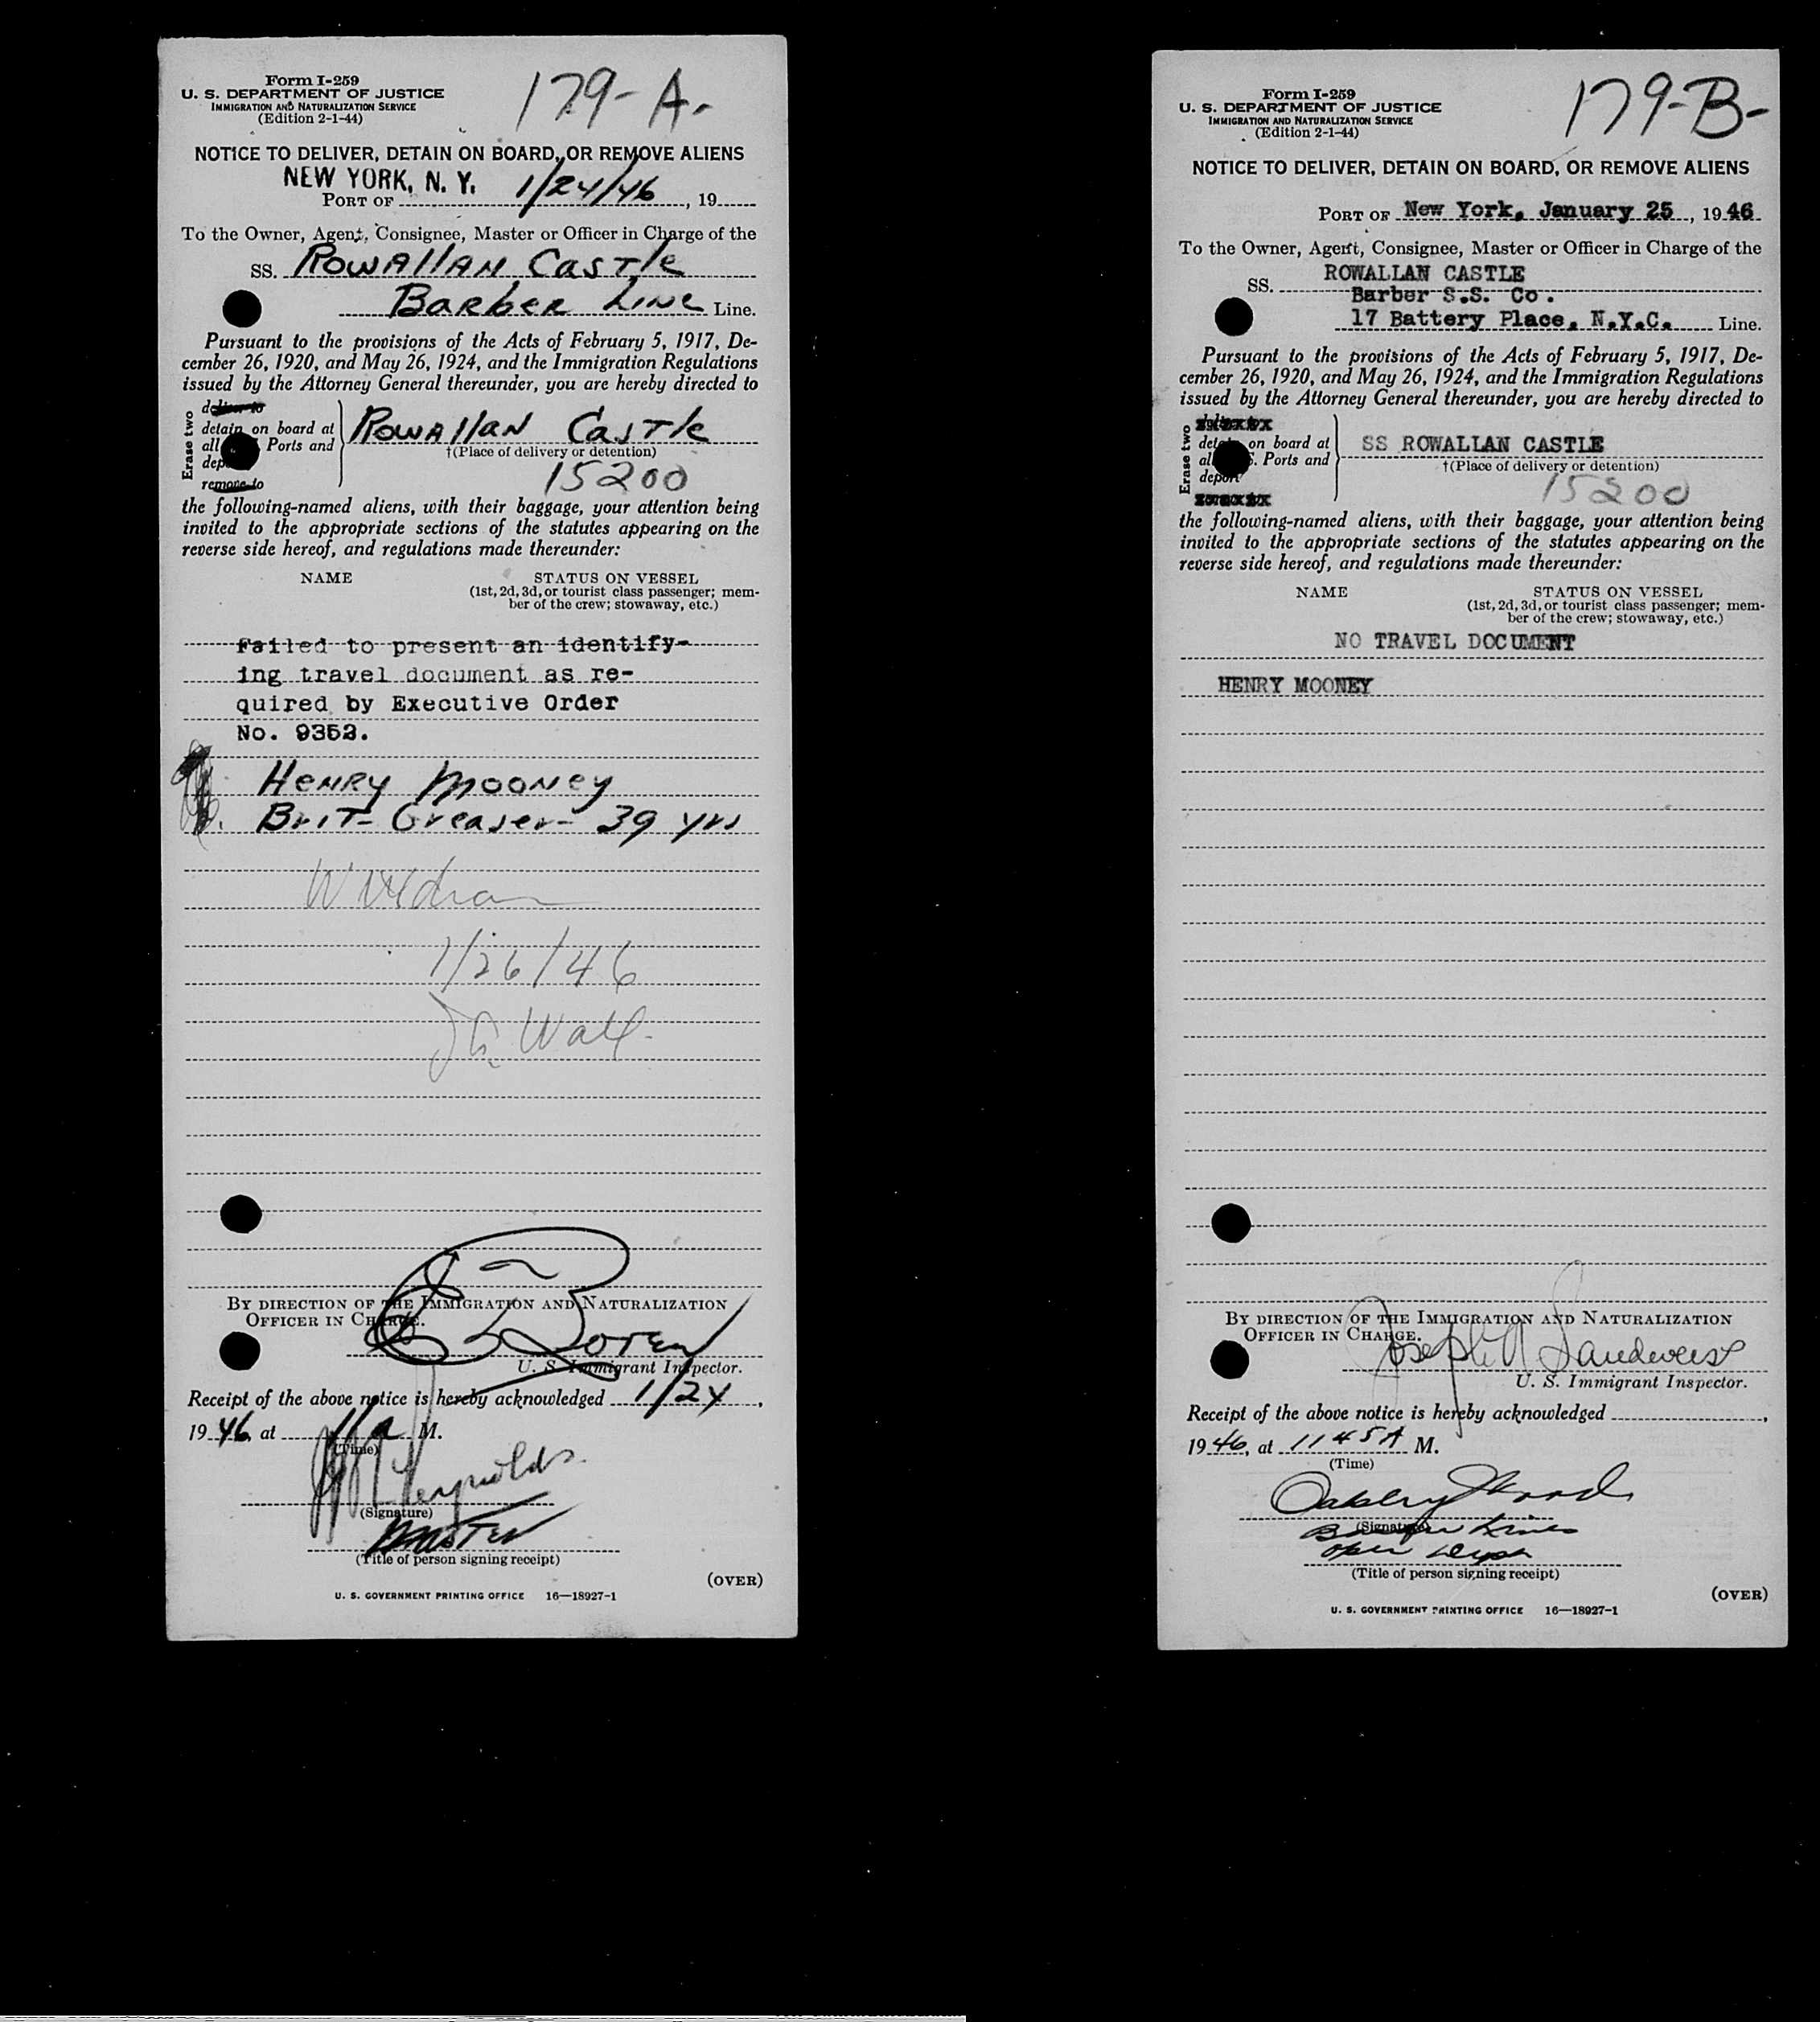 Form I-259
U. S. DEPARTMENT OF JUSTICE
IMMIGRATION AND NATURALIZATION SERVICE
(Edition 2-1-44)
179-A-
NOTICE TO DELIVER, DETAIN ON BOARD, OR REMOVE ALIENS
NEW YORK, N. Y. 1/24/46
PORT OF , 19
To the Owner, Agent, Consignee, Master or Officer in Charge of the
SS. ROWALLAN CASTLE
BARBER LINE Line.
Pursuant to the provisions of the Acts of February 5, 1917, De-
cember 26, 1920, and May 26, 1924, and the Immigration Regulations
issued by the Attorney General thereunder, you are hereby directed to
Erase two
deliver to
detain on board at
all Ports and
dep
remove to
ROWALLAN CASTLE
†(Place of delivery or detention)
15200
the following-named aliens, with their baggage, your attention being
invited to the appropriate sections of the statutes appearing on the
reverse side hereof, and regulations made thereunder:
NAME STATUS ON VESSEL
(1st, 2d, 3d, or tourist class passenger; mem-
ber of the crew; stowaway, etc.)
Failed to present an identify-
ing travel document as re-
quired by Executive Order
No. 9352.
HENRY MOONEY
Brit- Greaser- 39 yrs
1/26/46
BY DIRECTION OF THE IMMIGRATION AND NATURALIZATION
OFFICER IN CHARGE.
U. S. Immigrant Inspector.
Receipt of the above notice is hereby acknowledged 1/24,
19 46, at 11 a M.
(Time)
Reynolds
(Signature)
MASTER
(Title of person signing receipt)
(OVER)
U. S. GOVERNMENT PRINTING OFFICE 16—18927-1
Form I-259
U. S. DEPARTMENT OF JUSTICE
IMMIGRATION AND NATURALIZATION SERVICE
(Edition 2-1-44)
179-B-
NOTICE TO DELIVER, DETAIN ON BOARD, OR REMOVE ALIENS
PORT OF New York, January 25, 1946
To the Owner, Agent, Consignee, Master or Officer in Charge of the
SS. ROWALLAN CASTLE
Barber S.S. Co.
17 Battery Place, N.Y.C. Line.
Pursuant to the provisions of the Acts of February 5, 1917, De-
cember 26, 1920, and May 26, 1924, and the Immigration Regulations
issued by the Attorney General thereunder, you are hereby directed to
Erase two
on board at
S. Ports and
deport
SS ROWALLAN CASTLE
†(Place of delivery or detention)
15200
the following-named aliens, with their baggage, your attention being
invited to the appropriate sections of the statutes appearing on the
reverse side hereof, and regulations made thereunder:
NAME STATUS ON VESSEL
(1st, 2d, 3d, or tourist class passenger; mem-
ber of the crew; stowaway, etc.)
NO TRAVEL DOCUMENT
HENRY MOONEY
BY DIRECTION OF THE IMMIGRATION AND NATURALIZATION
OFFICER IN CHARGE.
Joseph
U. S. Immigrant Inspector.
Receipt of the above notice is hereby acknowledged ,
19 46, at 11 45 A M.
(Time)
Oakley Wood
(Signature)
Barber Lines
Oper Dept
(Title of person signing receipt)
(OVER)
U. S. GOVERNMENT PRINTING OFFICE 16—18927-1